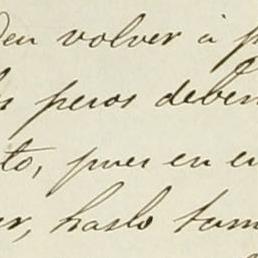 den volver á p
s peros deben
to, pues en e
er, hazlo tam